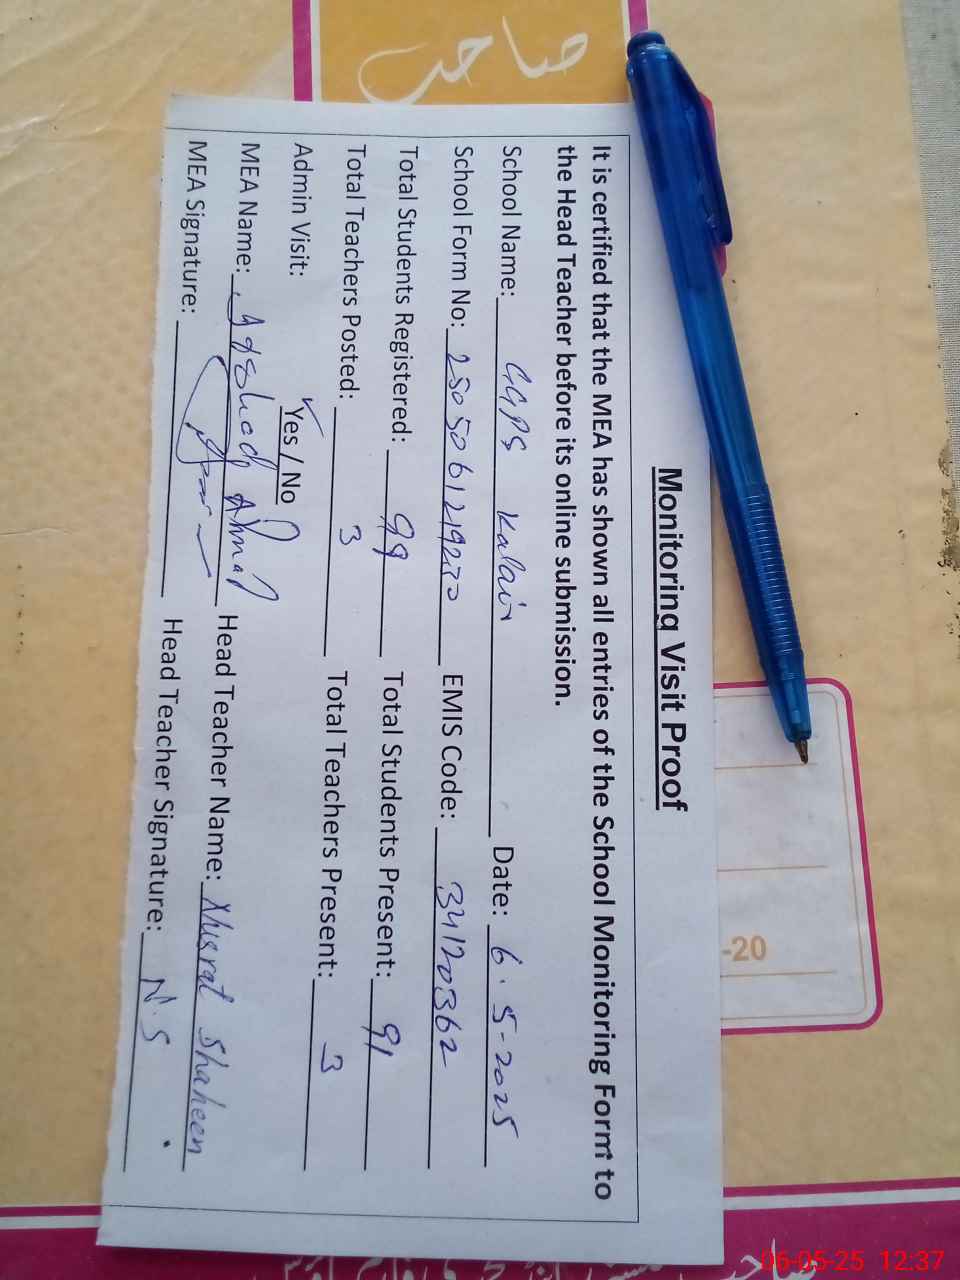 Monitoring Visit Proof
It is certified that the MEA has shown all entries of the School Monitoring Form to
the Head Teacher before its online submission.
School Name: GGPS Kalair Date: 6-5-2025
School Form No: EMIS Code: 34120362
Total Students Registered: 99 Total Students Present: 91
Total Teachers Posted: 3 Total Teachers Present: 3
Admin Visit: Yes / No
MEA Name: Arshad Ahmad Head Teacher Name: Nusrat Shaheen
MEA Signature: Head Teacher Signature: N.S
-20
06-05-25 12:37